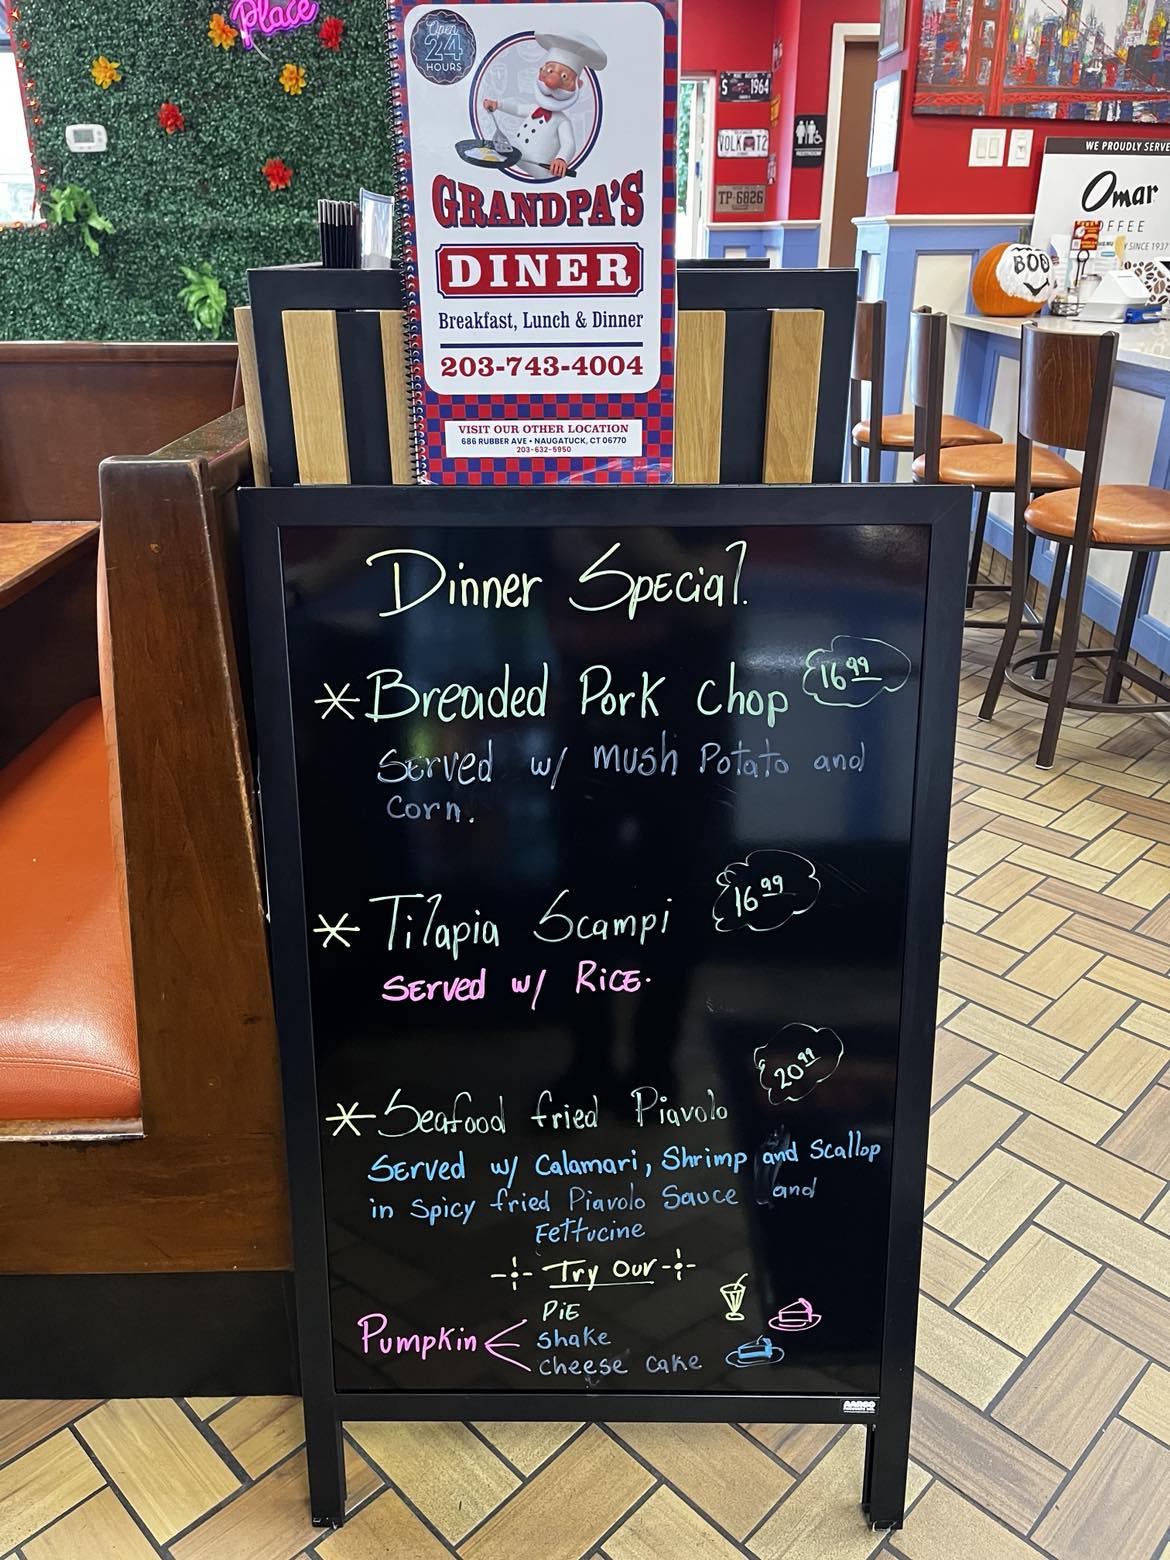 Place
Open
24
HOURS
GRANDPA'S
DINER
Breakfast, Lunch & Dinner
203-743-4004
VISIT OUR OTHER LOCATION
686 RUBBER AVE • NAUGATUCK, CT 06770
203-632-5950
S 1964
VOLK T2
TP-6826
RESTROOM
WE PROUDLY SERVE
Omar
OFFEE
SINCE 1937
BOO
Dinner Special.
* Breaded Pork Chop 16.99
Served w/ mush Potato and
Corn.
* Tilapia Scampi 16.99
Served w/ Rice.
20.99
* Seafood fried Piavolo
Served w/ Calamari, Shrimp and Scallop
in Spicy fried Piavolo Sauce and
Fettucine
Try Our
Pumpkin
Pie
Shake
cheese cake